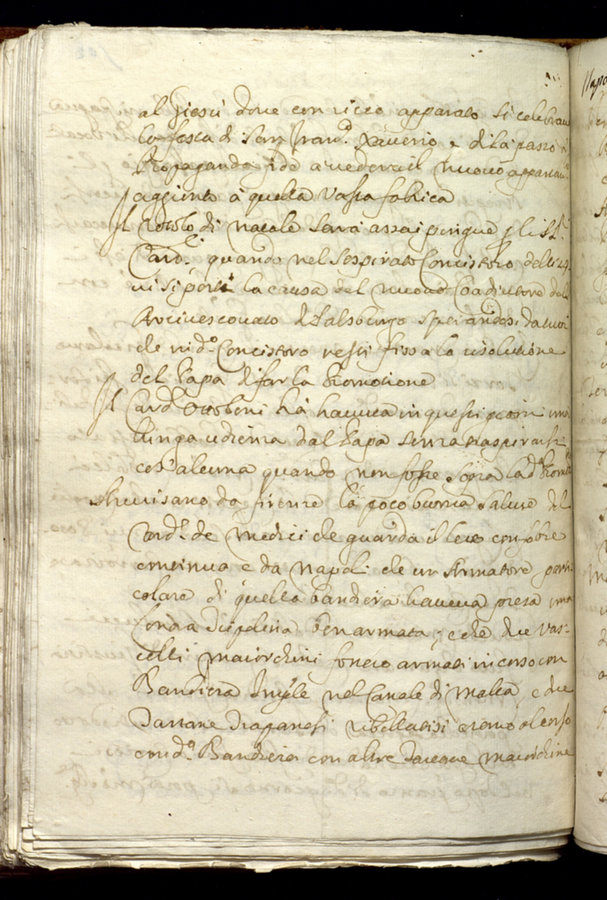 al Giesù doue con ricco apparato si celebraua
la festa di San Franc.º Xauerio e di là passò a
Propaganda fide a uedere il nuouo appartam.to
aggiunto à quella uasta fabrica
Il rotolo di natale sarà assai pingue p gli SS.ri
Card.li quando nel sospirato Concistoro delli 24
ui si porti la causa del nuouo Coadiutore del
Arciuescouato di Salsburgo sperandosi da tutti
che in d.º Concistoro resti fissa la risolutione
del Papa di far la Promotione
Il Card. Ottoboni hà hauuta in questi giorni una
lunga udienza dal Papa senza traspirarsi
cosa alcuna quando non fosse sopra la d.ª Prom.ne
Auuisano da firenze la poco buona salute del
Card.e de Medici che guarda il letto con febre
continua e da Napoli che un Armatore parti
colare di quella bandiera haueua presa una
Londra Dulcignota ben armata, e che due Vas-
celli maiorchini fossero armati in corso con
Bandiera Ing.le nel Canale di Malta, e due
Tartane Trapanesi ribellatisi erano al corso
con d.ª Bandiera con altre Saeque maiorchine